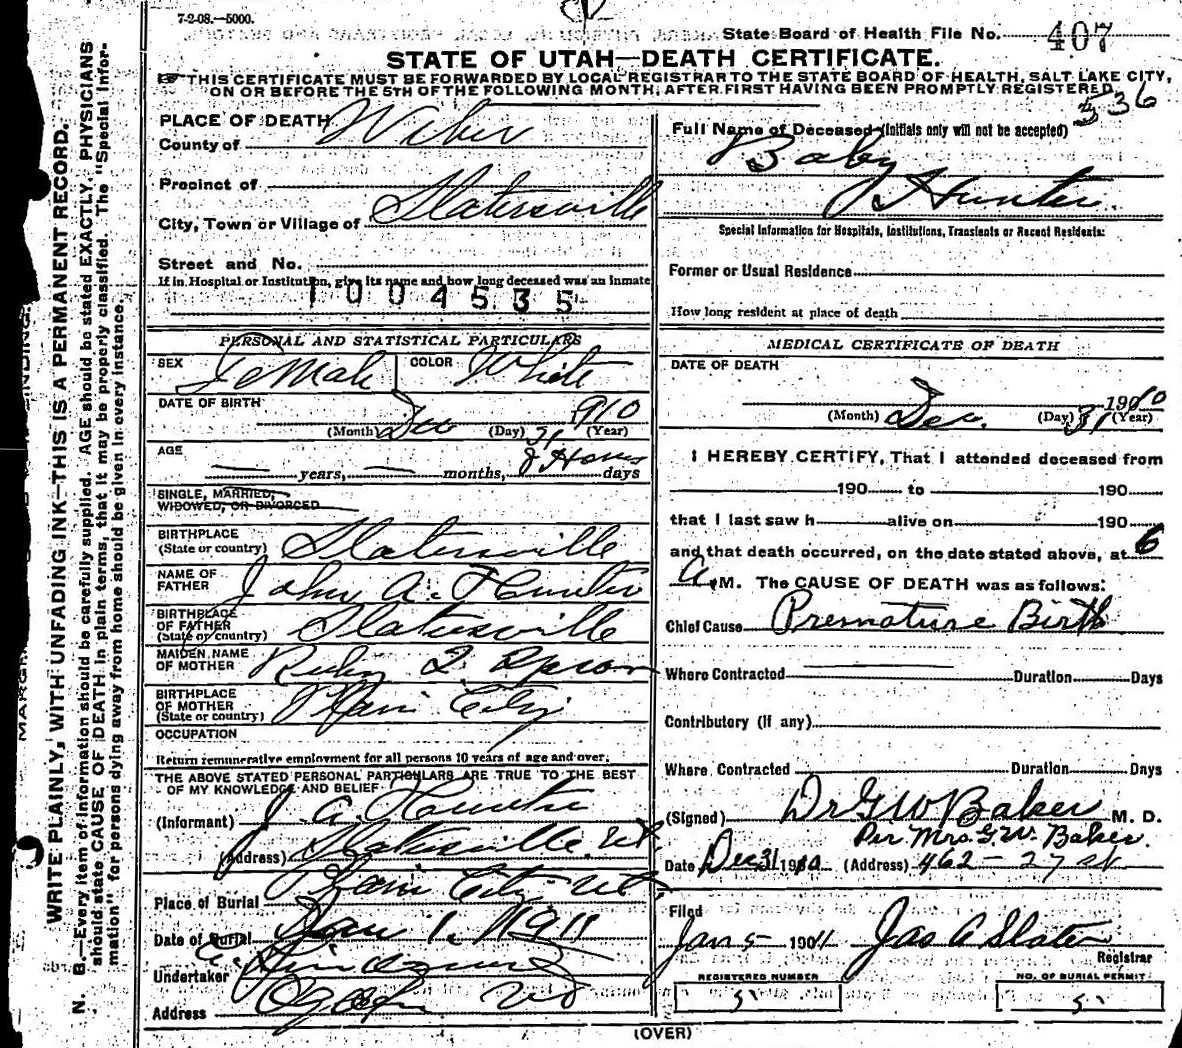 7-2-08.—5000.
State Board of Health File No. 407
STATE OF UTAH—DEATH CERTIFICATE.
THIS CERTIFICATE MUST BE FORWARDED BY LOCAL REGISTRAR TO THE STATE BOARD OF HEALTH, SALT LAKE CITY,
ON OR BEFORE THE 5TH OF THE FOLLOWING MONTH, AFTER FIRST HAVING BEEN PROMPTLY REGISTERED.
536
PLACE OF DEATH
County of Weber
Precinct of
City, Town or Village of Slatersville
Street and No.
If in Hospital or Institution, give its name and how long deceased was an inmate
1004535
PERSONAL AND STATISTICAL PARTICULARS
SEX Female COLOR White
DATE OF BIRTH
(Month) Dec (Day) 31 (Year) 910
AGE
years, months, 8 Hours days
SINGLE, MARRIED,
WIDOWED, OR DIVORCED
BIRTHPLACE
(State or country) Slatersville
NAME OF
FATHER John A. Hunter
BIRTHPLACE
OF FATHER
(State or country) Slatersville
MAIDEN NAME
OF MOTHER
BIRTHPLACE
OF MOTHER
(State or country) Plain City
OCCUPATION
Return remunerative employment for all persons 10 years of age and over.
THE ABOVE STATED PERSONAL PARTICULARS ARE TRUE TO THE BEST
OF MY KNOWLEDGE AND BELIEF
(Informant) J. A. Hunter
(Address) Slatersville. Ut.
Place of Burial Plain City Ut.
Date of Burial Jan 1. 1911
Undertaker
Address Ogden Ut
Full Name of Deceased (Initials only will not be accepted)
Baby
Hunter.
Special Information for Hospitals, Institutions, Transients or Recent Residents:
Former or Usual Residence
How long resident at place of death
MEDICAL CERTIFICATE OF DEATH
DATE OF DEATH
1910
(Month) Dec. (Day) 31 (Year)
I HEREBY CERTIFY, That I attended deceased from
190 to 190
that I last saw h alive on 190
and that death occurred, on the date stated above, at 6
a. M. The CAUSE OF DEATH was as follows:
Chief Cause Premature Birth
Where Contracted Duration Days
Contributory (if any)
Where Contracted Duration Days
(Signed) Dr G W Baker M. D.
Per Mrs. G. W. Baker.
Date Dec 31 1910 (Address) 462 - 27 st
Filed
Jan 5 1911 Jas A Slater
Registrar
REGISTERED NUMBER
5
NO. OF BURIAL PERMIT
5
(OVER)
MARGIN
BINDING.
WRITE PLAINLY, WITH UNFADING INK—THIS IS A PERMANENT RECORD.
N. B.—Every item of information should be carefully supplied. AGE should be stated EXACTLY. PHYSICIANS
should state CAUSE OF DEATH in plain terms, that it may be properly classified. The "Special Infor-
mation" for persons dying away from home should be given in every instance.